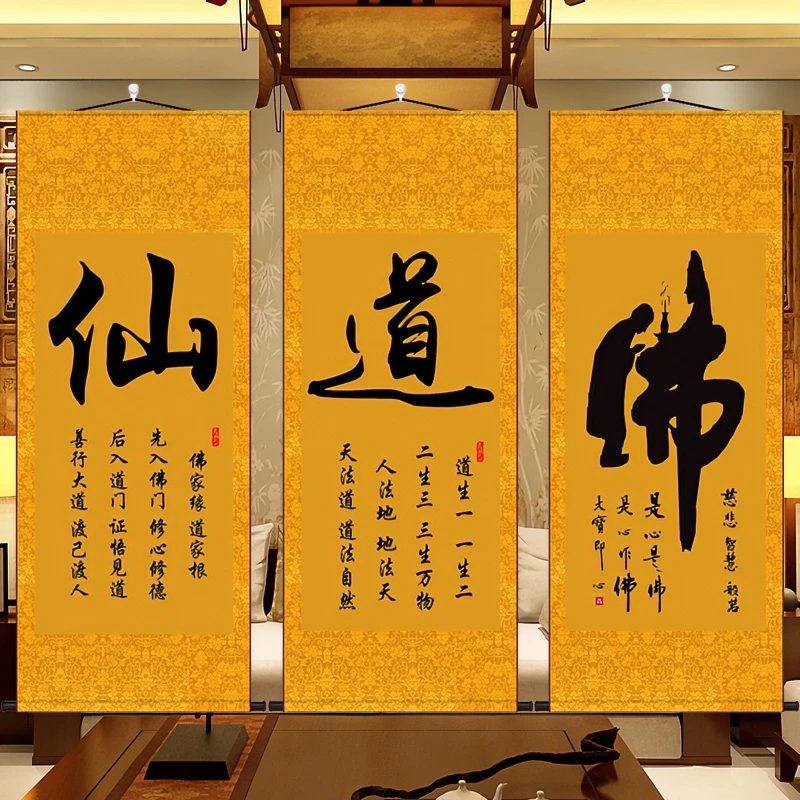 仙
佛家缘 道家根
先入佛门 修心修德
后入道门 证悟见道
善行大道 渡己渡人
道
道生一 一生二
二生三 三生万物
人法地 地法天
天法道 道法自然
佛
慈悲 智慧 般若
是心是佛
是心作佛
大寶即心